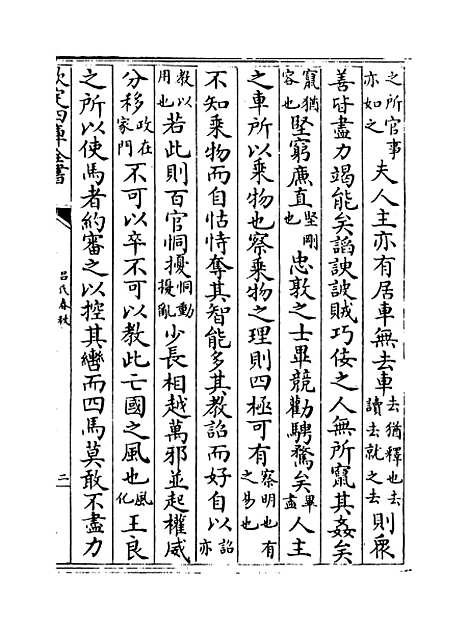 之所官事亦如之夫人主亦有居車無去車去猶釋也去讀去就之去則衆
善皆盡力竭能矣諂諛詖賊巧佞之人無所竄其姦矣
竄猶容也堅窮廉直堅剛也忠敦之士畢競勸騁騖矣畢盡人主
之車所以乘物也察乘物之理則四極可有察明也有之易也
不知乘物而自怙恃奪其智能多其教詔而好自以詔亦
教以用也若此則百官恫擾恫動擾亂少長相越萬邪並起權威
分移政在家門不可以卒不可以教此亡國之風也風化王良
之所以使馬者約審之以控其轡而四馬莫敢不盡力
欽定四庫全書
呂氏春秋
二